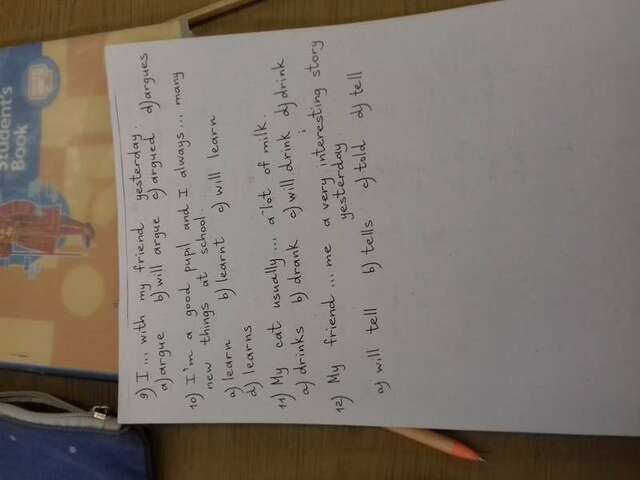 Student's
Book
9) I ... with my friend yesterday.
a) argue b) will argue c) argued d) argues
10) I'm a good pupil and I always ... many
new things at school.
a) learn b) learnt c) will learn
d) learns
11) My cat usually ... a lot of milk.
a) drinks b) drank c) will drink d) drink
12) My friend ... me a very interesting story
yesterday
a) will tell b) tells c) told d) tell